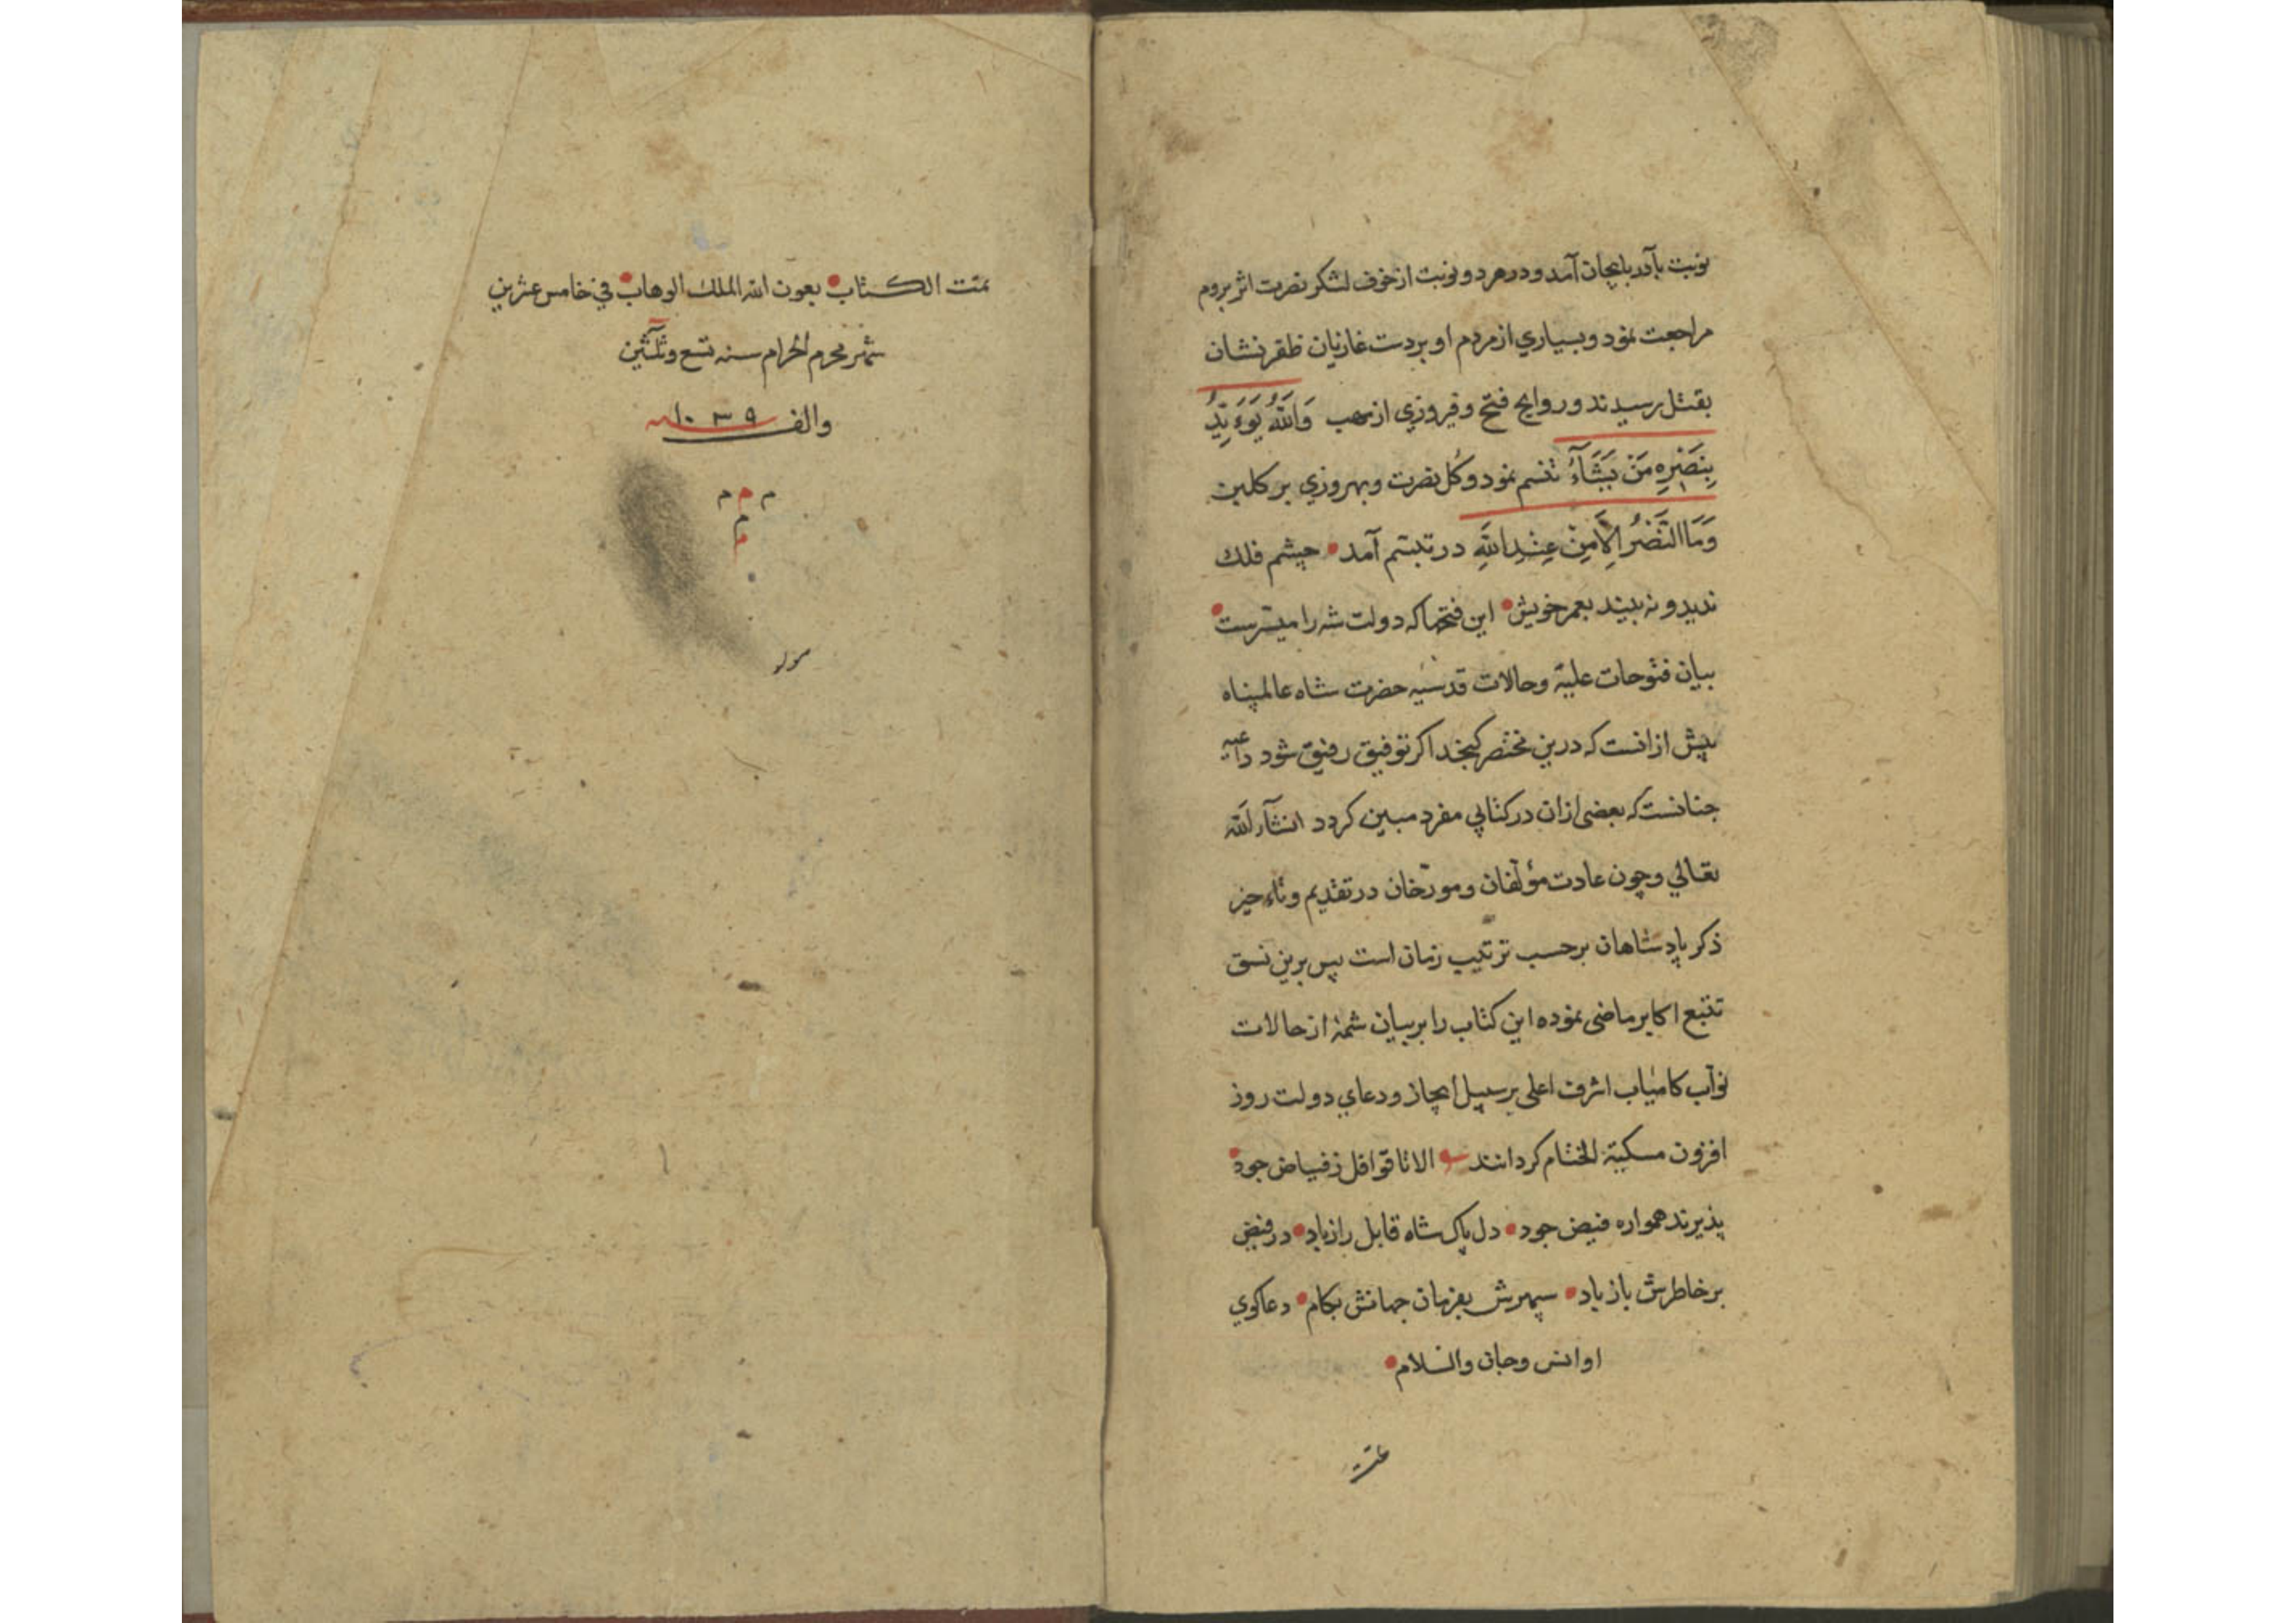 نوبت بآذربایجان آمد و در هر دو نوبت از خوف لشکر نصرت اثر بروم
مراجعت نمود و بسیاري از مردم او بر دست غازیان ظفر نشان
بقتل رسیدند و روایح فتح و فیروزي از مهب وَاللّٰهُ یُوَءَیِّدُ
بِنَصْرِهِ مَنْ یَشَآءُ تنسم نمود و کُل نصرت و بهروزي بر کلبن
وَمَا النَّصْرُ اِلَّا مِنْ عِنْدِ اللّٰهِ در تبسّم آمد • چشم فلك
ندید و نه بیند بعمر خویش • این فتحها که دولت شه را میسّرست •
بیان فتوحات علیّه و حالات قدسیّه حضرت شاه عالمپناه
بیش ازانست که درین مختصر کنجد اکر توفیق رفیق شود داعیه
چنانست که بعضی ازان در کتابي مفرد مبین کردد انشآء اللّه
تعالي و چون عادت مؤلّفان و مورّخان در تقدیم و تاءخیر
ذکر پادشاهان بر حسب ترتیب زمان است پس برین نسق
تتبع اکابر ماضی نموده این کتاب را بر بیان شمهٔ از حالات
نوّاب کامیاب اشرف اعلی بر سبیل ایجاز و دعاي دولت روز
افزون مسکیّة الختام کردانند الا تا قوافل ز فیاض جود •
پذیرند همواره فیض جود • دل پاک شاه قابل راز باد • در فیض
بر خاطرش باز باد • سپهرش بفرمان جهانش بکام • دعاکوي
او انس و جان والسّلام •
تمّت الکتاب • بعون الله الملك الوهاب • في خامس عشرین
شهر محرم الحرام سنه تسع و ثلثین
والف ١٠٣٩
م م م
م
م